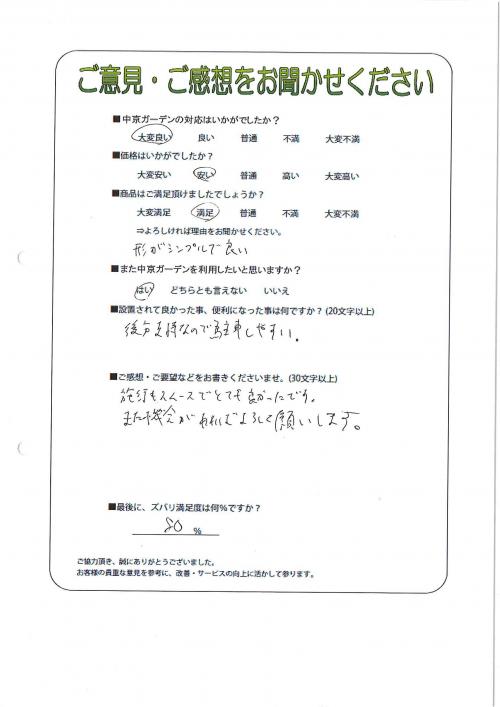 ご意見・ご感想をお聞かせください
■中京ガーデンの対応はいかがでしたか？
大変良い 良い 普通 不満 大変不満
■価格はいかがでしたか？
大変安い 安い 普通 高い 大変高い
■商品はご満足頂けましたでしょうか？
大変満足 満足 普通 不満 大変不満
⇒よろしければ理由をお聞かせください。
形がシンプルで良い
■また中京ガーデンを利用したいと思いますか？
はい どちらとも言えない いいえ
■設置されて良かった事、便利になった事は何ですか？(20文字以上)
後方支持なので駐車しやすい。
■ご感想・ご要望などをお書きくださいませ。(30文字以上)
施行もスムースでとても良かったです。
また機会があればよろしく願いします。
■最後に、ズバリ満足度は何%ですか？
80 %
ご協力頂き、誠にありがとうございました。
お客様の貴重な意見を参考に、改善・サービスの向上に活かして参ります。